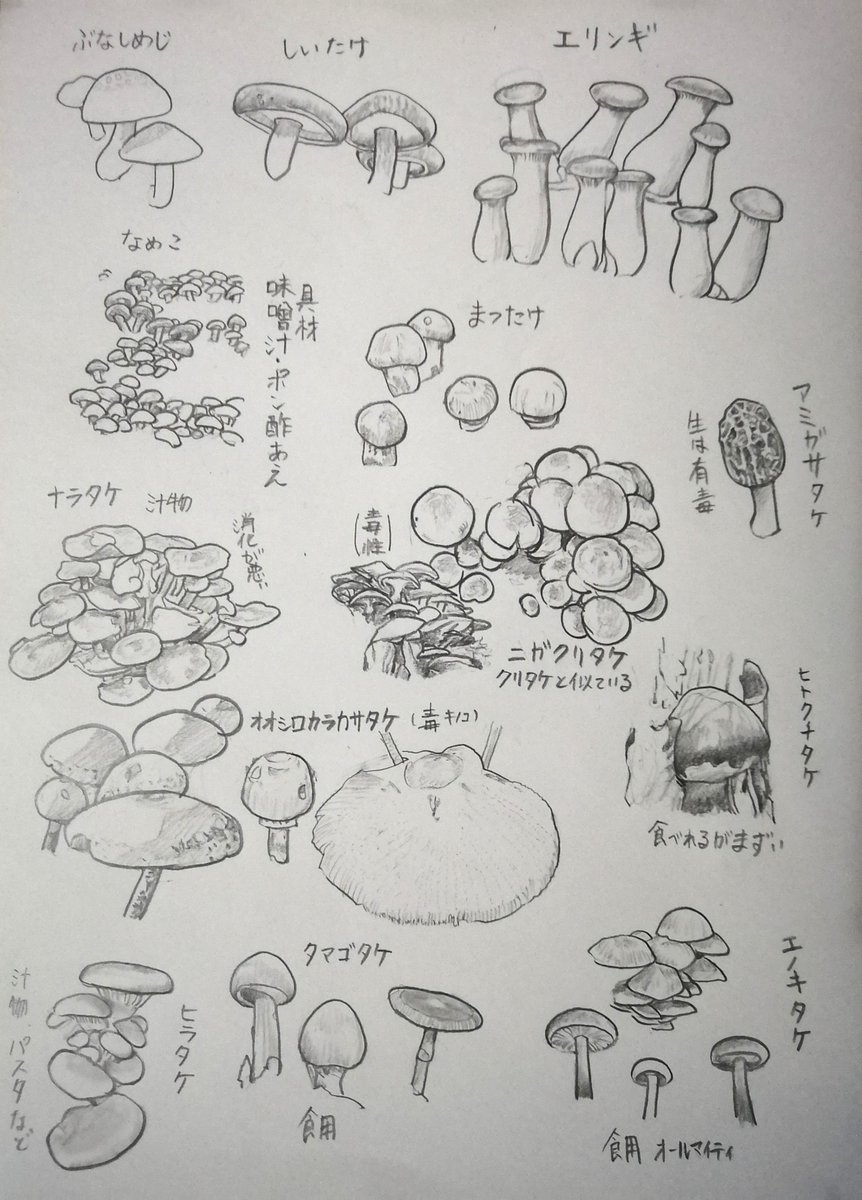 ぶなしめじ
しいたけ
エリンギ
なめこ
具材
味噌汁・ポン酢あえ
まつたけ
アミガサタケ
生は有毒
ナラタケ
汁物
消化が悪い
(毒性)
ニガクリタケ
クリタケと似ている
オオシロカラカサタケ(毒キノコ)
ヒトクチタケ
食べれるがまずい
タマゴタケ
食用
ヒラタケ
汁物・パスタなど
エノキタケ
食用 オールマイティ